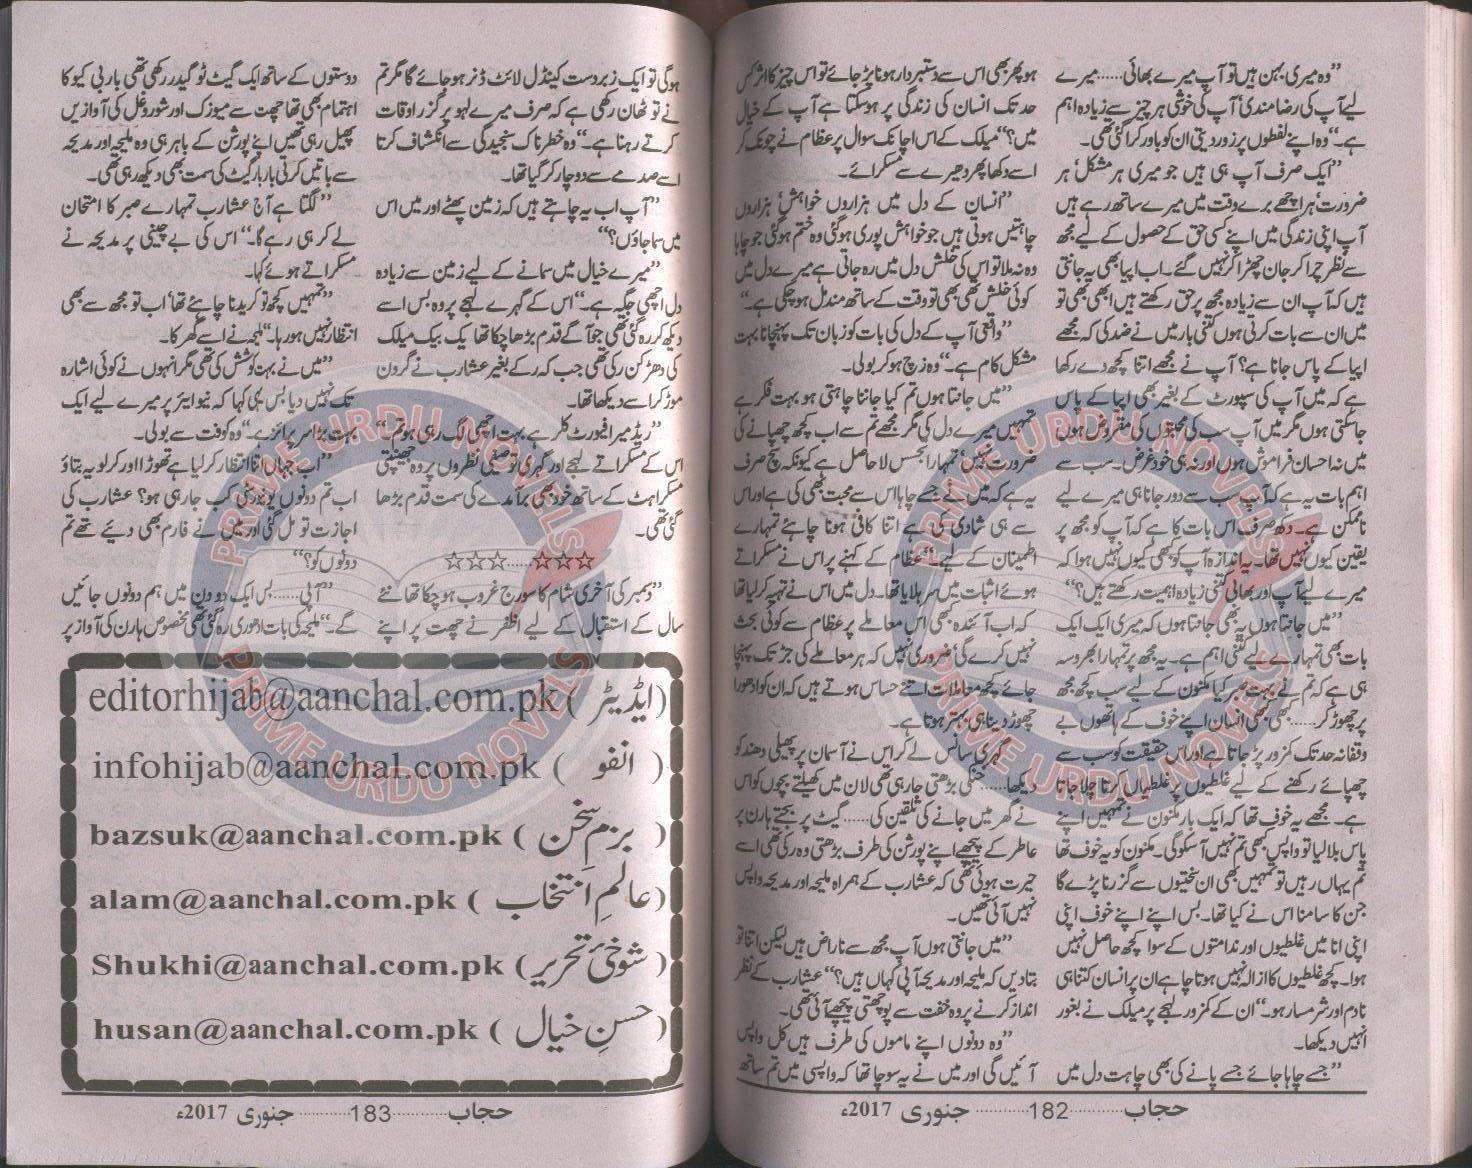 ”وہ میری بہن ہیں تو آپ میرے بھائی...... میرے
لیے آپ کی رضا مندی‘ آپ کی خوشی ہر چیز سے زیادہ اہم
ہے۔“ وہ اپنے لفظوں پر زور دیتی ان کو باور کرا گئی تھی۔
”ایک صرف آپ ہی ہیں جو میری ہر مشکل‘ ہر
ضرورت‘ ہر اچھے برے وقت میں میرے ساتھ رہے ہیں
آپ اپنی زندگی میں اپنے کسی حق کے حصول کے لیے مجھ
سے نظر چرا کر جان چھڑا کر نہیں گئے۔ اب اپیا بھی یہ جانتی
ہیں کہ آپ ان سے زیادہ مجھ پر حق رکھتے ہیں ابھی بھی تو
میں ان سے بات کرتی ہوں کتنی بار میں نے ضد کی کہ مجھے
اپیا کے پاس جانا ہے؟ آپ نے مجھے اتنا کچھ دے رکھا
ہے کہ میں آپ کی سپورٹ کے بغیر بھی اپیا کے پاس
جاسکتی ہوں مگر میں آپ سب کی محبتوں کی مقروض ہوں
میں نہ احسان فراموش ہوں اور نہ ہی خود غرض۔ سب سے
اہم بات یہ ہے کہ آپ سب سے دور جانا ہی میرے لیے
ناممکن ہے۔ دکھ صرف اس بات کا ہے کہ آپ کو مجھ پر
یقین کیوں نہیں تھا۔ یہ اندازہ آپ کو کبھی کیوں نہیں ہوا کہ
میرے لیے آپ اور بھائی کتنی زیادہ اہمیت رکھتے ہیں؟“
”میں جانتا ہوں یہ بھی جانتا ہوں کہ میری ایک ایک
بات بھی تمہارے لیے کتنی اہم ہے۔ یہ مجھ پر تمہارا بھروسہ
ہی ہے کہ تم نے بہت صبر کیا مکنون کے لیے سب کچھ مجھ
پر چھوڑ کر...... کبھی کبھی انسان اپنے خوف کے ہاتھوں بے
وقفانہ حد تک کمزور پڑ جاتا ہے اور اس حقیقت کو سب سے
چھپائے رکھنے کے لیے غلطیوں پر غلطیاں کرتا چلا جاتا
ہے۔ مجھے یہ خوف تھا کہ ایک بار مکنون نے تمہیں اپنے
پاس بلا لیا تو واپس کبھی تم نہیں آسکو گی۔ مکنون کو یہ خوف تھا
تم یہاں رہیں تو تمہیں بھی ان سختیوں سے گزرنا پڑے گا
جن کا سامنا اس نے کیا تھا۔ بس اپنے اپنے خوف اپنی
اپنی انا میں غلطیوں اور ندامتوں کے سوا کچھ حاصل نہیں
ہوا۔ کچھ غلطیوں کا ازالہ نہیں ہوتا چاہے ان پر انسان کتنا ہی
نادم اور شرمسار ہو۔“ ان کے کمزور لہجے پر میلک نے بغور
انہیں دیکھا۔
”جسے چاہا جائے جسے پانے کی بھی چاہت دل میں
ہو پھر بھی اس سے دستبردار ہونا پڑ جائے تو اس چیز کا اثر کس
حد تک انسان کی زندگی پر ہوسکتا ہے آپ کے خیال
میں؟“ میلک کے اس اچانک سوال پر عظام نے چونک کر
اسے دیکھا پھر دھیرے سے مسکرائے۔
”انسان کے دل میں ہزاروں خواہش‘ ہزاروں
چاہتیں ہوتی ہیں جو خواہش پوری ہوگئی وہ ختم ہوگئی جو چاہا
وہ نہ ملا تو اس کی خلش دل میں رہ جاتی ہے میرے دل میں
کوئی خلش تھی بھی تو وقت کے ساتھ مندمل ہوچکی ہے۔“
”واقعی آپ کے دل کی بات کو زبان تک پہنچانا بہت
مشکل کام ہے۔“ وہ زچ ہو کر بولی۔
”میں جانتا ہوں تم کیا جاننا چاہتی ہو بہت فکر ہے
تمہیں میرے دل کی مگر مجھے تم سے اب کچھ چھپانے کی
ضرورت نہیں‘ تمہارا تجسس لاحاصل ہے کیونکہ سچ صرف
یہ ہے کہ میں نے جسے چاہا اس سے محبت بھی کی ہے اور اس
سے ہی شادی کی ہے اتنا کافی ہونا چاہئے تمہارے
اطمینان کے لیے۔“ عظام کے کہنے پر اس نے مسکراتے
ہوئے اثبات میں سر ہلایا تھا۔ دل میں اس نے تہیہ کرلیا تھا
کہ اب آئندہ بھی اس معاملے پر عظام سے کوئی بحث
نہیں کرے گی‘ ضروری نہیں کہ ہر معاملے کی جڑ تک پہنچا
جائے کچھ معاملات اتنے حساس ہوتے ہیں کہ ان کو ادھورا
چھوڑ دینا ہی بہتر ہوتا ہے۔
گہری سانس لے کر اس نے آسمان پر پھیلی دھند کو
دیکھا...... خنکی بڑھتی جارہی تھی لان میں کھیلتے بچوں کو اس
نے گھر میں جانے کی تلقین کی...... گیٹ پر بجتے ہارن پر
عاطر کے پیچھے اپنے پورشن کی طرف بڑھتی وہ رکی تھی اسے
حیرت ہوئی تھی کہ عشارب کے ہمراہ ملیحہ اور مدیحہ واپس
نہیں آئی تھیں۔
”میں جانتی ہوں آپ مجھ سے ناراض ہیں لیکن اتنا تو
بتادیں کہ ملیحہ اور مدیحہ آپی کہاں ہیں؟“ عشارب کے نظر
انداز کرنے پر وہ خفت سے پوچھتی پیچھے آئی تھی۔
”وہ دونوں اپنے ماموں کی طرف ہیں کل واپس
آئیں گی اور میں نے یہ سوچا تھا کہ واپسی میں تم ساتھ
حجاب .......... 182 .......... جنوری 2017ء
ہوگی تو ایک زبردست کینڈل لائٹ ڈنر ہوجائے گا مگر تم
نے تو ٹھان رکھی ہے کہ صرف میرے لہو پر گزر اوقات
کرتے رہنا ہے۔“ وہ خطرناک سنجیدگی سے انکشاف کرتا
اسے صدمے سے دوچار کر گیا تھا۔
”آپ اب یہ چاہتے ہیں کہ زمین پھٹے اور میں اس
میں سما جاؤں؟“
”میرے خیال میں سمانے کے لیے زمین سے زیادہ
دل اچھی جگہ ہے۔“ اس کے گہرے لہجے پر وہ بس اسے
دیکھ کر رہ گئی تھی جو آگے قدم بڑھا چکا تھا یک بیک میلک
کی دھڑکن رکی تھی جب کہ رکے بغیر عشارب نے گردن
موڑ کر اسے دیکھا تھا۔
”ریڈ میرا فیورٹ کلر ہے بہت اچھی لگ رہی ہو تم۔“
اس کے مسکراتے لہجے اور گہری توصیفی نظروں پر وہ جھینپتی
مسکراہٹ کے ساتھ خود بھی برآمدے کی سمت قدم بڑھا
گئی تھی۔
☆☆☆......☆☆☆
”دسمبر کی آخری شام کا سورج غروب ہوچکا تھا نئے
سال کے استقبال کے لیے اظفر نے چھت پر اپنے
دوستوں کے ساتھ ایک گیٹ ٹو گیدر رکھی تھی بار بی کیو کا
اہتمام بھی تھا چھت سے میوزک اور شور و غل کی آوازیں
پھیل رہی تھیں اپنے پورشن کے باہر ہی وہ ملیحہ اور مدیحہ
سے باتیں کرتی بار بار گیٹ کی سمت بھی دیکھ رہی تھی۔
”لگتا ہے آج عشارب تمہارے صبر کا امتحان
لے کر ہی رہے گا۔“ اس کی بے چینی پر مدیحہ نے
مسکراتے ہوئے کہا۔
”تمہیں کچھ تو کریدنا چاہئے تھا‘ اب تو مجھ سے بھی
انتظار نہیں ہو رہا۔“ ملیحہ نے اسے گھرکا۔
”میں نے بہت کوشش کی تھی مگر انہوں نے کوئی اشارہ
تک نہیں دیا بس یہی کہا کہ نیو ایئر پر میرے لیے ایک
بہت بڑا سرپرائز ہے۔“ وہ کوفت سے بولی۔
”اب جہاں اتنا انتظار کرلیا ہے تھوڑا اور کرلو یہ بتاؤ
اب تم دونوں یونیورسٹی کب جارہی ہو؟ عشارب کی
اجازت تو مل گئی اور میں نے فارم بھی دیئے تھے تم
دونوں کو؟“
”آپی...... بس ایک دو دن میں ہم دونوں جائیں
گے۔“ ملیحہ کی بات ادھوری رہ گئی تھی مخصوص ہارن کی آواز پر
editorhijab@aanchal.com.pk ( ایڈیٹر )
infohijab@aanchal.com.pk ( انفو )
bazsuk@aanchal.com.pk ( بزمِ سخن )
alam@aanchal.com.pk ( عالمِ انتخاب )
Shukhi@aanchal.com.pk ( شوخیٔ تحریر )
husan@aanchal.com.pk ( حسنِ خیال )
حجاب .......... 183 .......... جنوری 2017ء
PRIME URDU NOVELS
PRIME URDU NOVELS
PRIME URDU NOVELS
PRIME URDU NOVELS